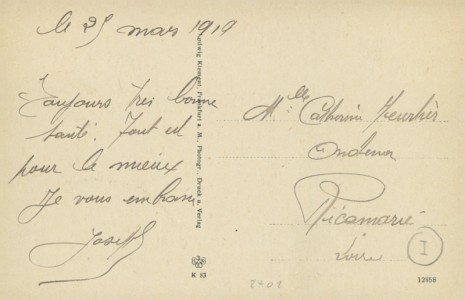 le 25 mars 1919
Toujours très bonne
santé. Tout est
pour le mieux
Je vous embrasse
Joseph
Ludwig Klement, Frankfurt a. M., Photogr., Druck u. Verlag
K 63
Mlle Catherine
Ricamarie
Loire
I
8408
12858